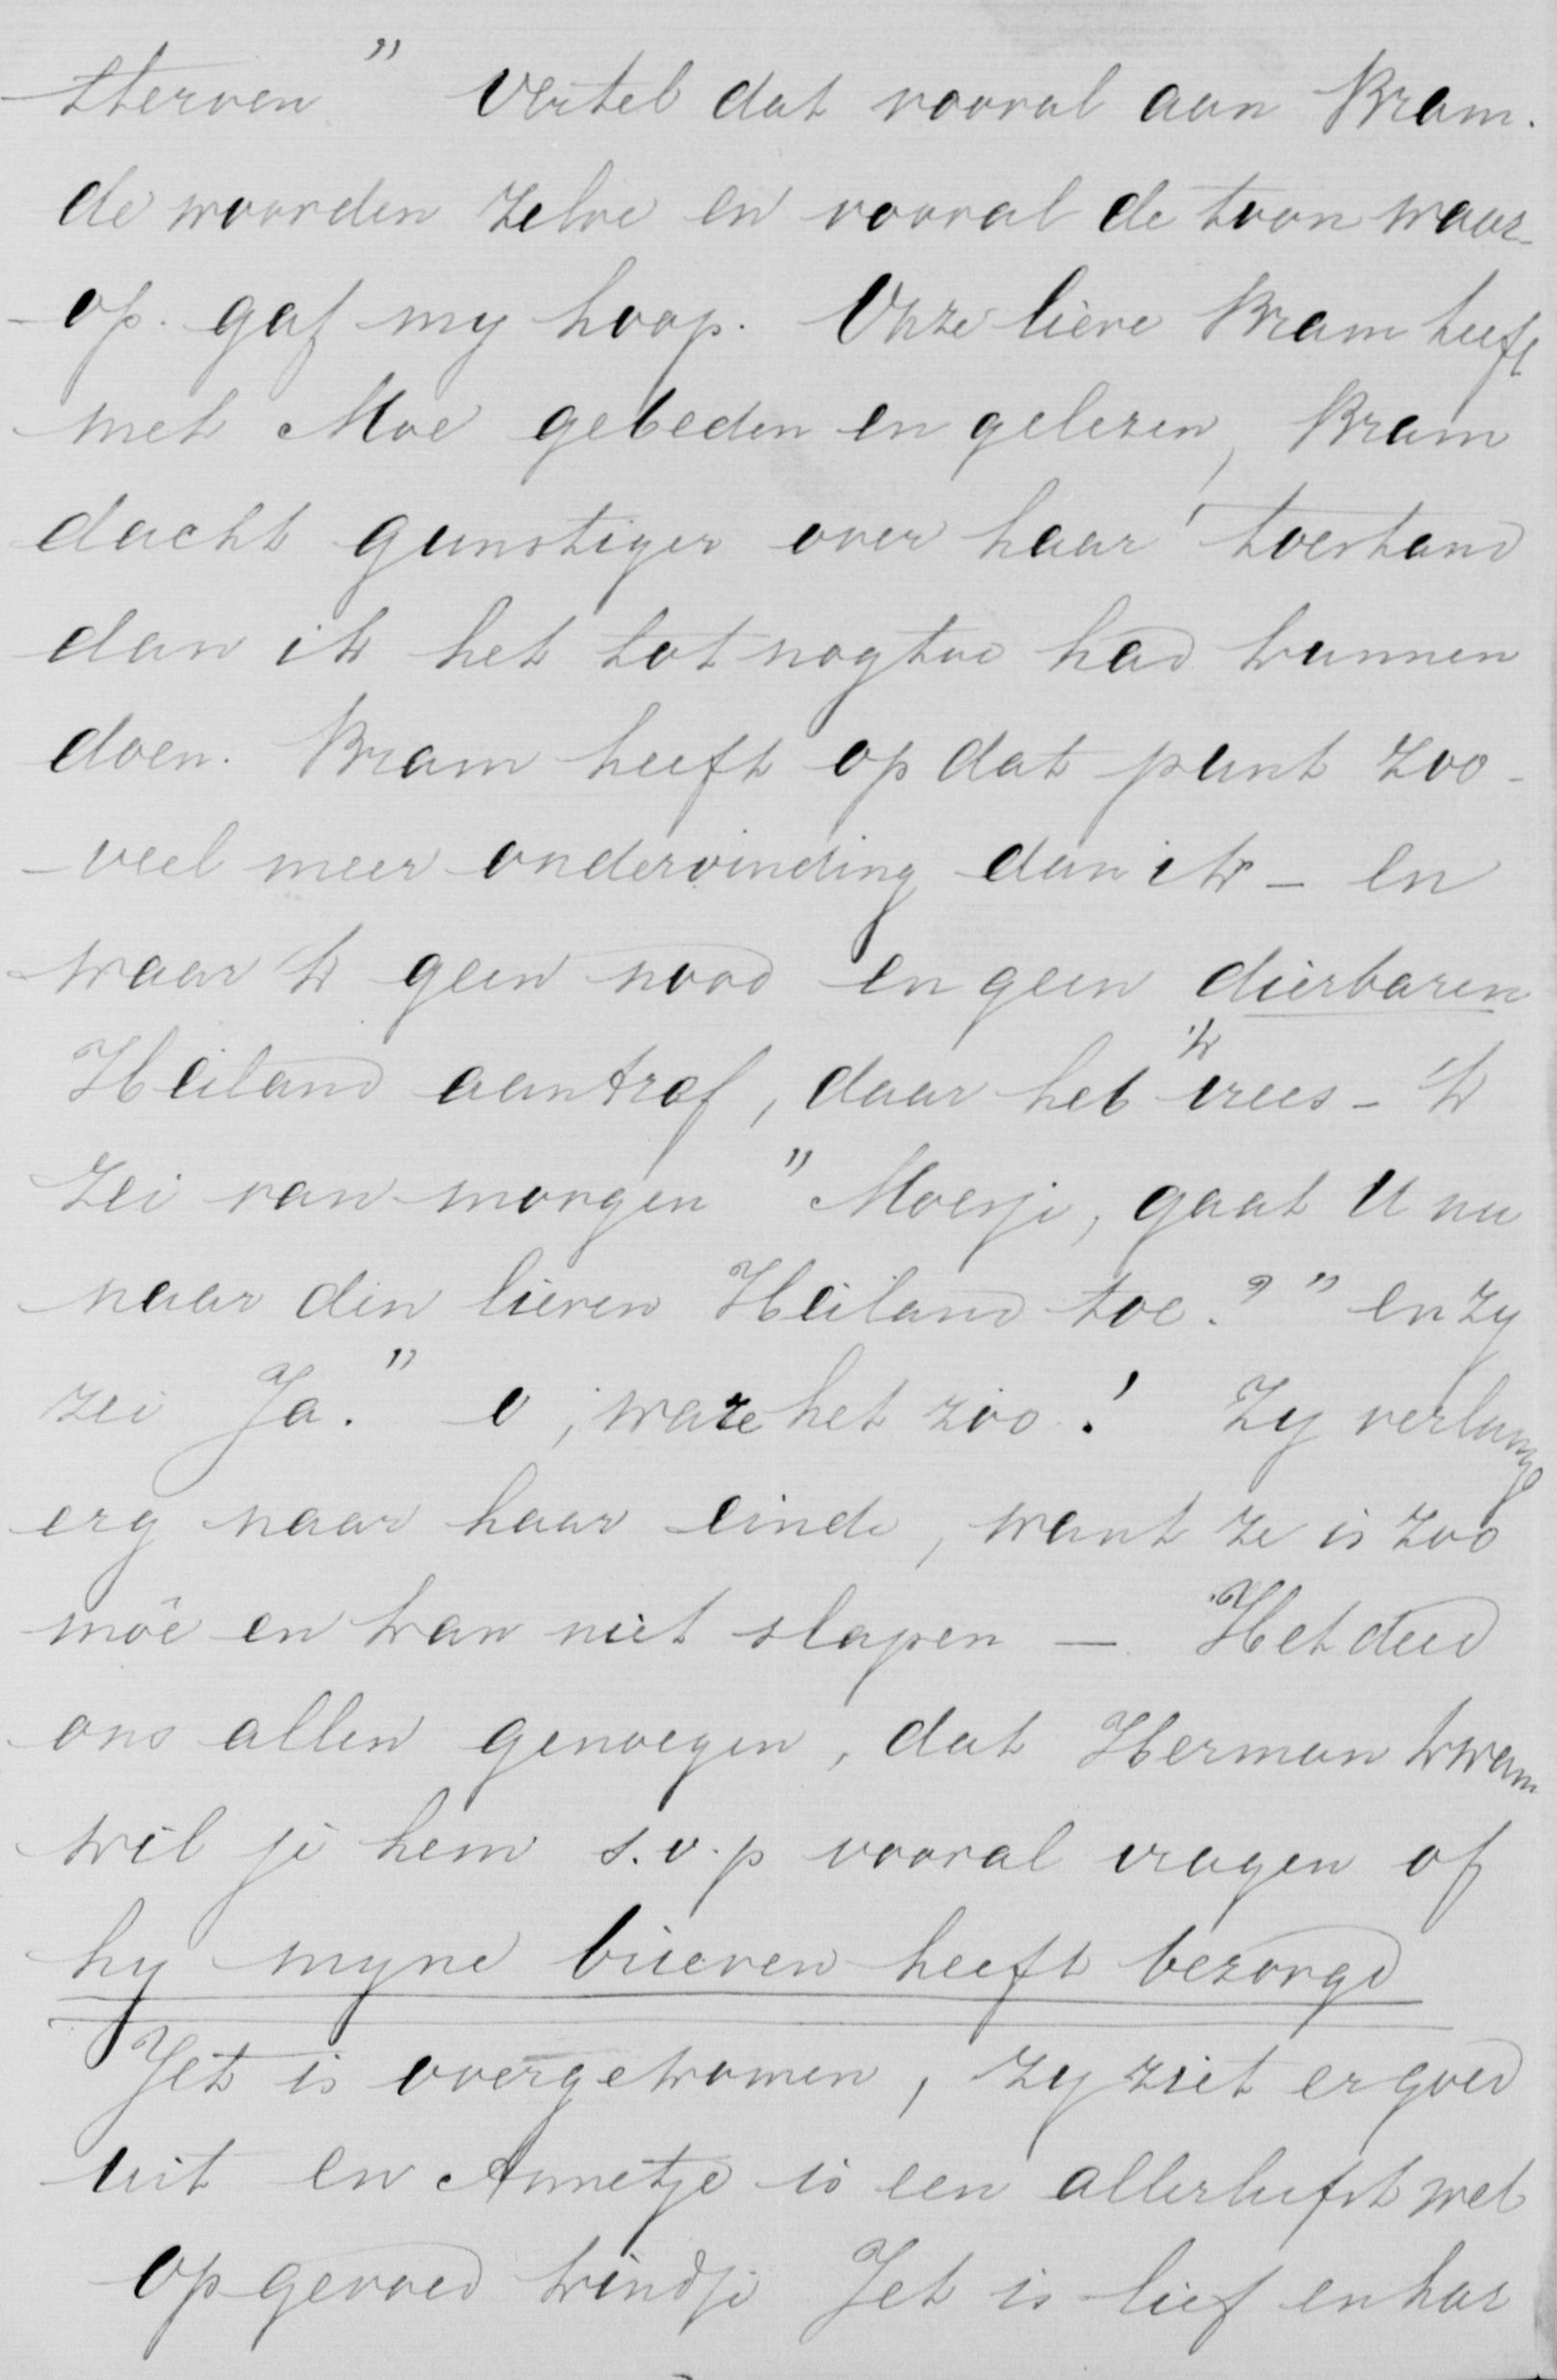 sterven" Vertel dat vooral aan Bram.
de woorden zelve en vooral de toon waar-
op gaf my hoop. Onze lieve Bram heeft
met Moe gebeden en gelezen, Bram
dacht gunstiger over haar toestand
dan ik het totnogtoe had kunnen
doen. Bram heeft op dat punt zoo-
-veel meer ondervinding dan ik - en
waar 'k geen nood en geen dierbaren
Heiland aantref, daar heb 'k vrees - 'k
zei van morgen "Moesje, gaat U nu
naar den lieven Heiland toe?" en zy
zei Ja." o, ware het zoo! Zy verlangt
erg naar haar einde, want ze is zoo
moê en kan niet slapen — Het deed
ons allen genoegen, dat Herman kwam
wil je hem s.v.p vooral vragen of
hy myne brieven heeft bezorgd
Jet is overgekomen, zy ziet er goed
uit en Annetje is een allerliefst wel
opgevoed kindje Jet is lief en har